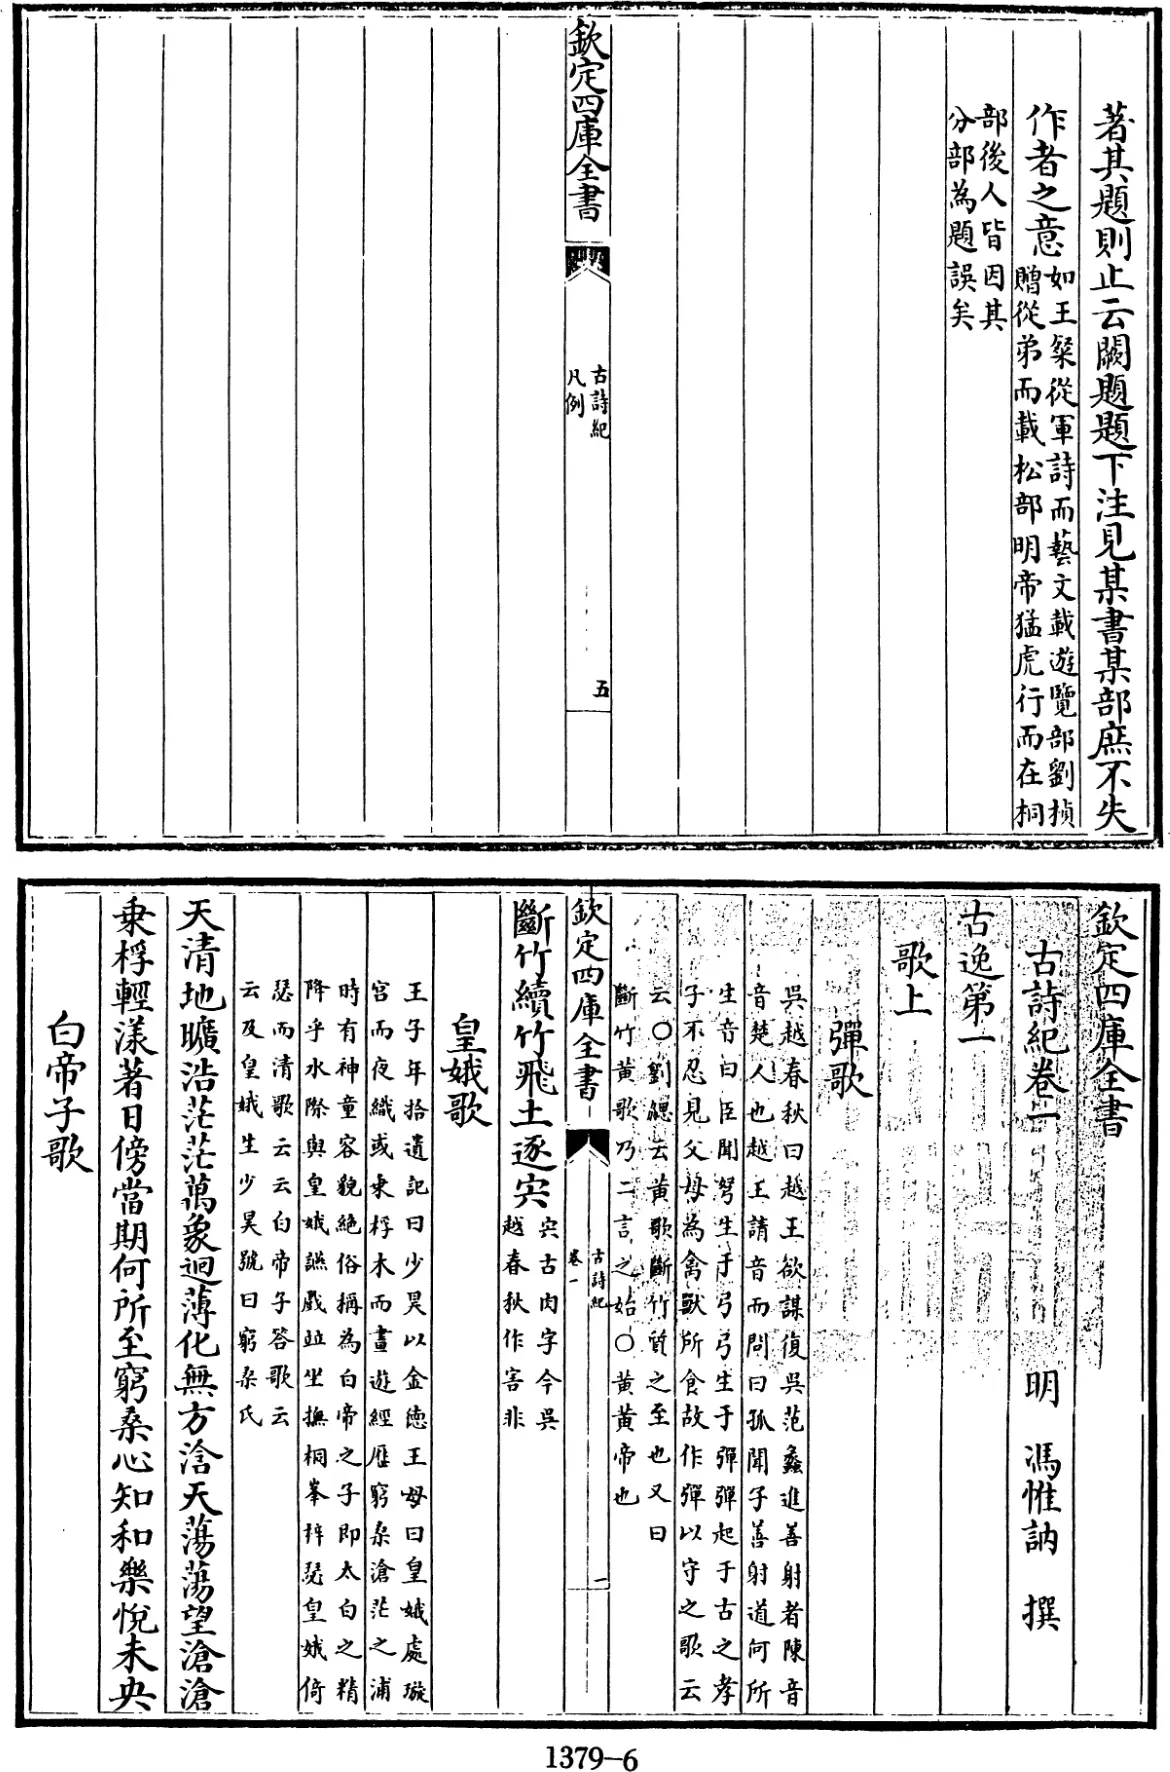 著其題則止云闕題題下注見某書某部庶不失
作者之意如王粲從軍詩而藝文載遊覽部劉楨
贈從弟而載松部明帝猛虎行而在桐
部後人皆因其
分部為題誤矣
欽定四庫全書
古詩紀
凡例
五
欽定四庫全書
古詩紀卷一
明 馮惟訥 撰
古逸第一
歌上
彈歌
吳越春秋曰越王欲謀復吳范蠡進善射者陳音
音楚人也越王請音而問曰孤聞子善射道何所
生音曰臣聞弩生于弓弓生于彈彈起于古之孝
子不忍見父母為禽獸所食故作彈以守之歌云
云○劉勰云黄歌斷竹質之至也又曰
斷竹黄歌乃二言之始○黄黄帝也
欽定四庫全書
古詩紀
卷一
一
斷竹續竹飛土逐宍宍古肉字今吳
越春秋作害非
皇娥歌
王子年拾遺記曰少昊以金徳王母曰皇娥處璇
宫而夜織或乗桴木而晝遊經厯窮桑滄茫之浦
時有神童容貌絶俗稱為白帝之子即太白之精
降乎水際與皇娥讌戲並坐撫桐峯梓瑟皇娥倚
瑟而清歌云云白帝子答歌云
云及皇娥生少昊號曰窮桑氏
天清地曠浩茫茫萬象迴薄化無方浛天蕩蕩望滄滄
乗桴輕漾著日傍當期何所至窮桑心知和樂悅未央
白帝子歌
1379-6